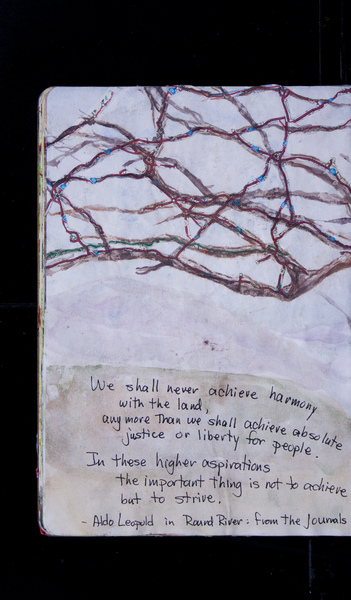 We shall never achieve harmony
with the land,
any more Than we shall achieve absolute
justice or liberty for people.
In these higher aspirations
the important thing is not to achieve
but to strive.
- Aldo Leopold in Round River: from the Journals